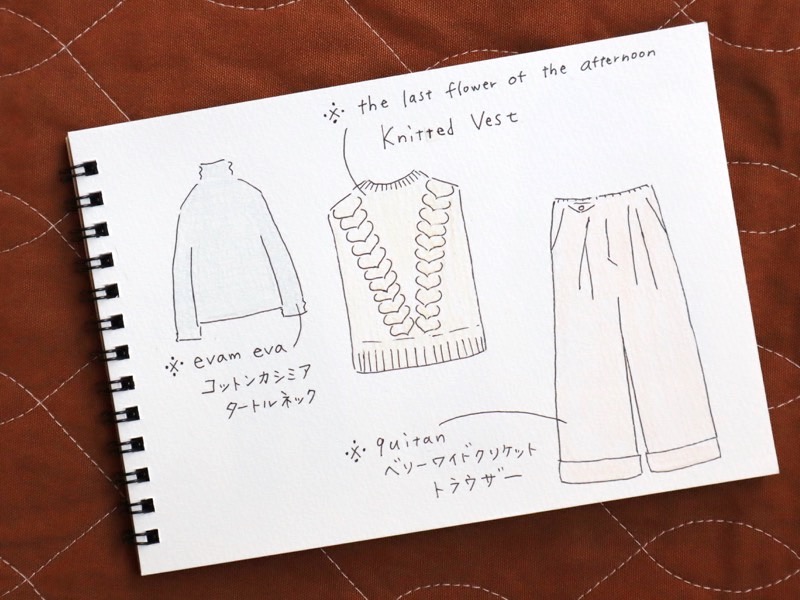 ※ the last flower of the afternoon
Knitted Vest
※ evam eva
コットンカシミア
タートルネック
※ quitan
ベリーワイドクリケット
トラウザー